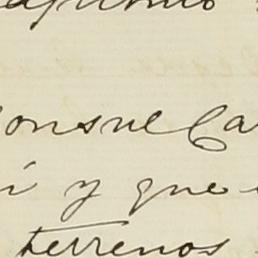 onsul Ca
i y que
terrenos